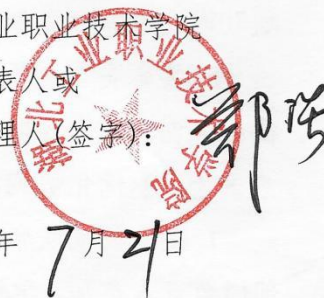 业职业技术学院
表人或
理人(签字):
年 7月21日
湖北工业职业技术学院